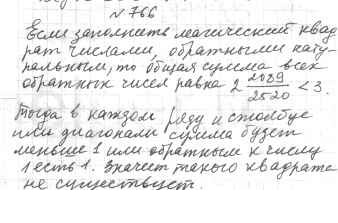 № 766
Если заполнить магический квад
рат числами, обратными нату
ральным, то общая сумма всех
обратных чисел равна 2 2089/2520 < 3.
Тогда в каждом ряду и столбце
или диагонали сумма будет
меньше 1 или обратным к числу
1 есть 1. Значит такого квадрата
не существует.